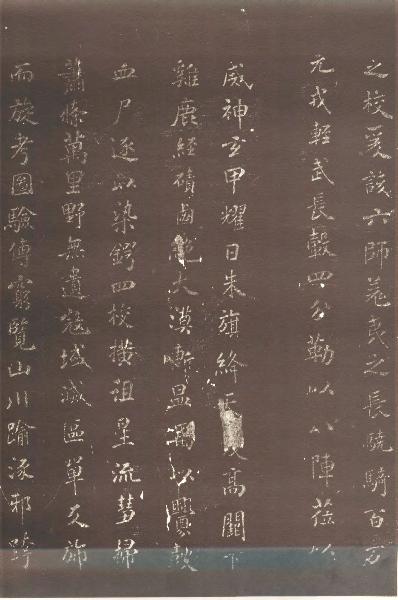 之校爰該六師羌夷之長驍騎百万
元戎輕武長轂四分勒以八陣莅以
威神玄甲耀日朱旗絳高闕下
雞鹿經磧鹵絕大漠斬温禺以釁鼓
血尸逐以染鍔四校橫徂星流彗掃
蕭條萬里野無遺寇域滅區單反旆
而旋考圖驗傳窮覽山川踰涿邪跨